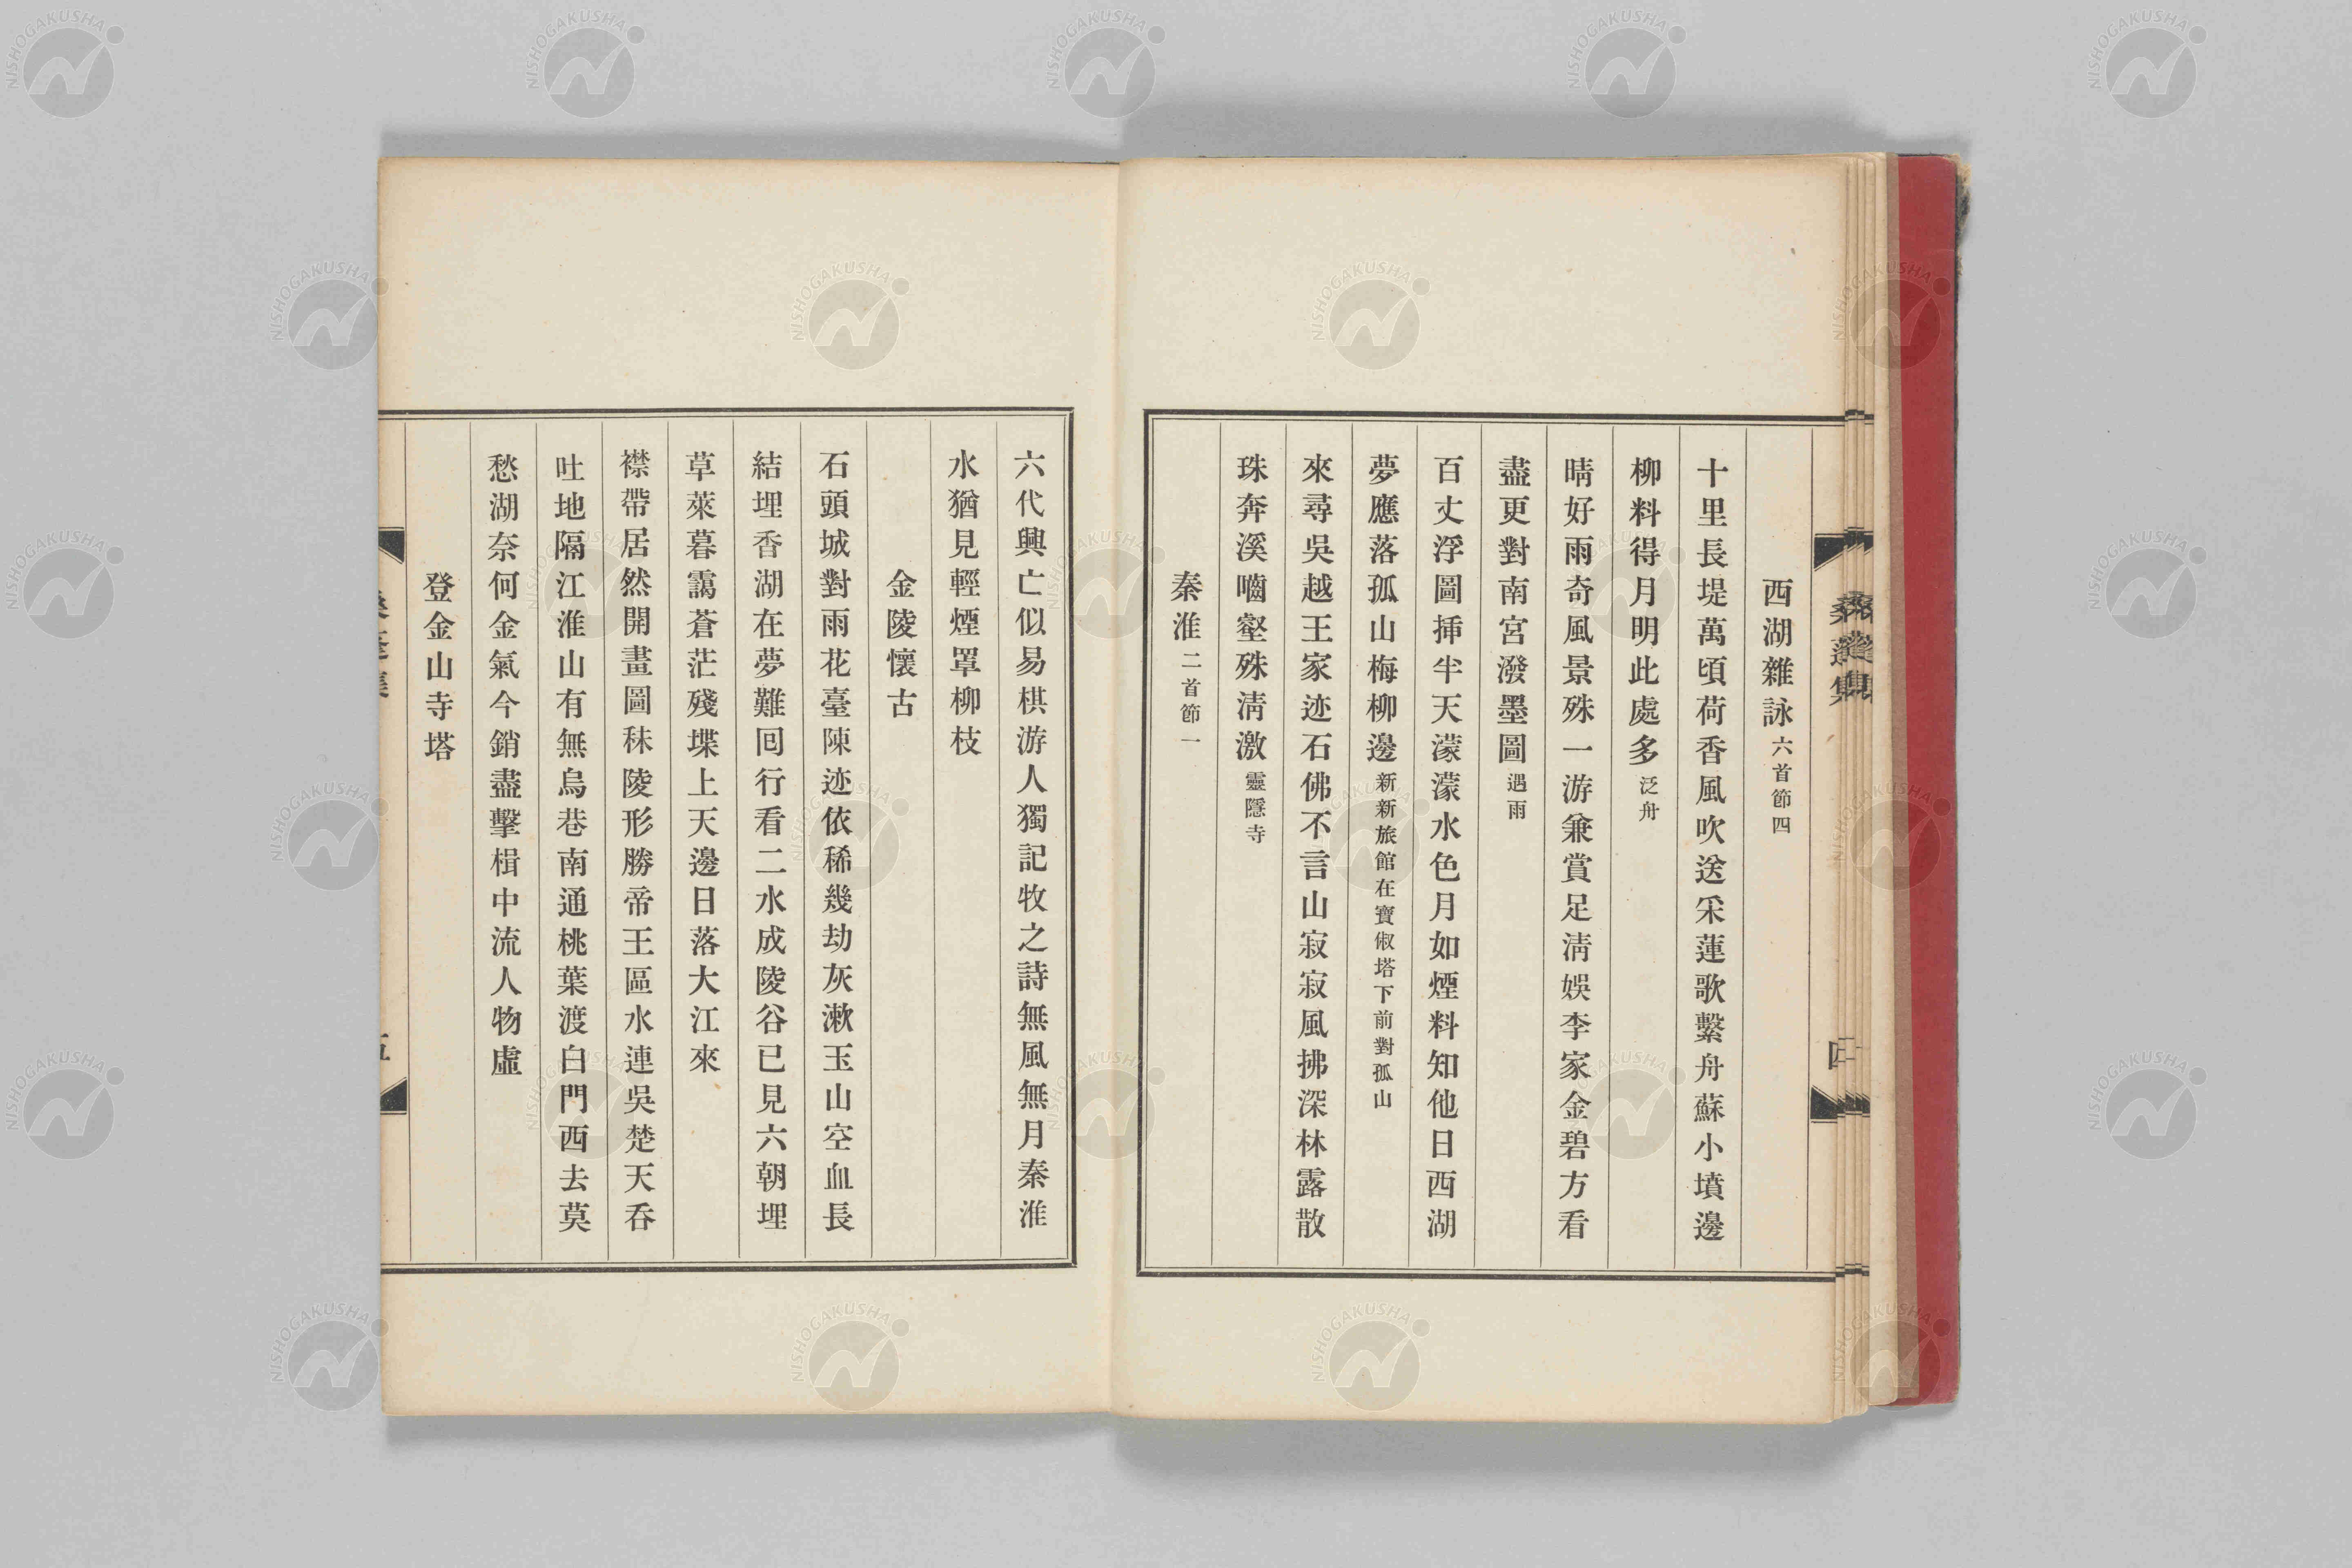 西湖雜詠六首節四
十里長堤萬頃荷香風吹送采蓮歌繫舟蘇小墳邊
柳料得月明此處多泛舟
晴好雨奇風景殊一游兼賞足淸娛李家金碧方看
盡更對南宮潑墨圖遇雨
百丈浮圖揷半天濛濛水色月如煙料知他日西湖
夢應落孤山梅柳邊新新旅館在寶俶塔下前對孤山
來尋吳越王家迹石佛不言山寂寂風拂深林露散
珠奔溪嚙壑殊淸激靈隱寺
秦淮二首節一
六代興亡似易棋游人獨記牧之詩無風無月秦淮
水猶見輕煙罩柳枝
金陵懷古
石頭城對雨花臺陳迹依稀幾劫灰漱玉山空血長
結埋香湖在夢難回行看二水成陵谷已見六朝埋
草萊暮靄蒼茫殘堞上天邊日落大江來
襟帶居然開畫圖秣陵形勝帝王區水連吳楚天呑
吐地隔江淮山有無烏巷南通桃葉渡白門西去莫
愁湖奈何金氣今銷盡擊楫中流人物虛
登金山寺塔
五
NISHOGAKUSHA